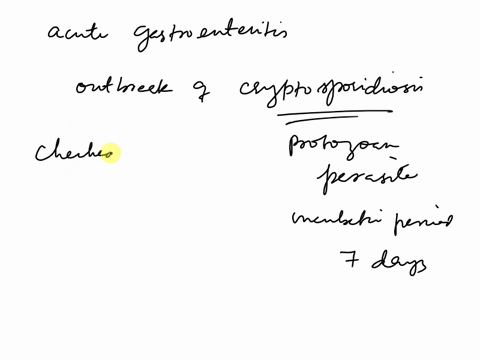 acute gastroenteritis
outbreak of cryptosporidiosis
protozoan
parasite
Checke
incubatin period
7 days